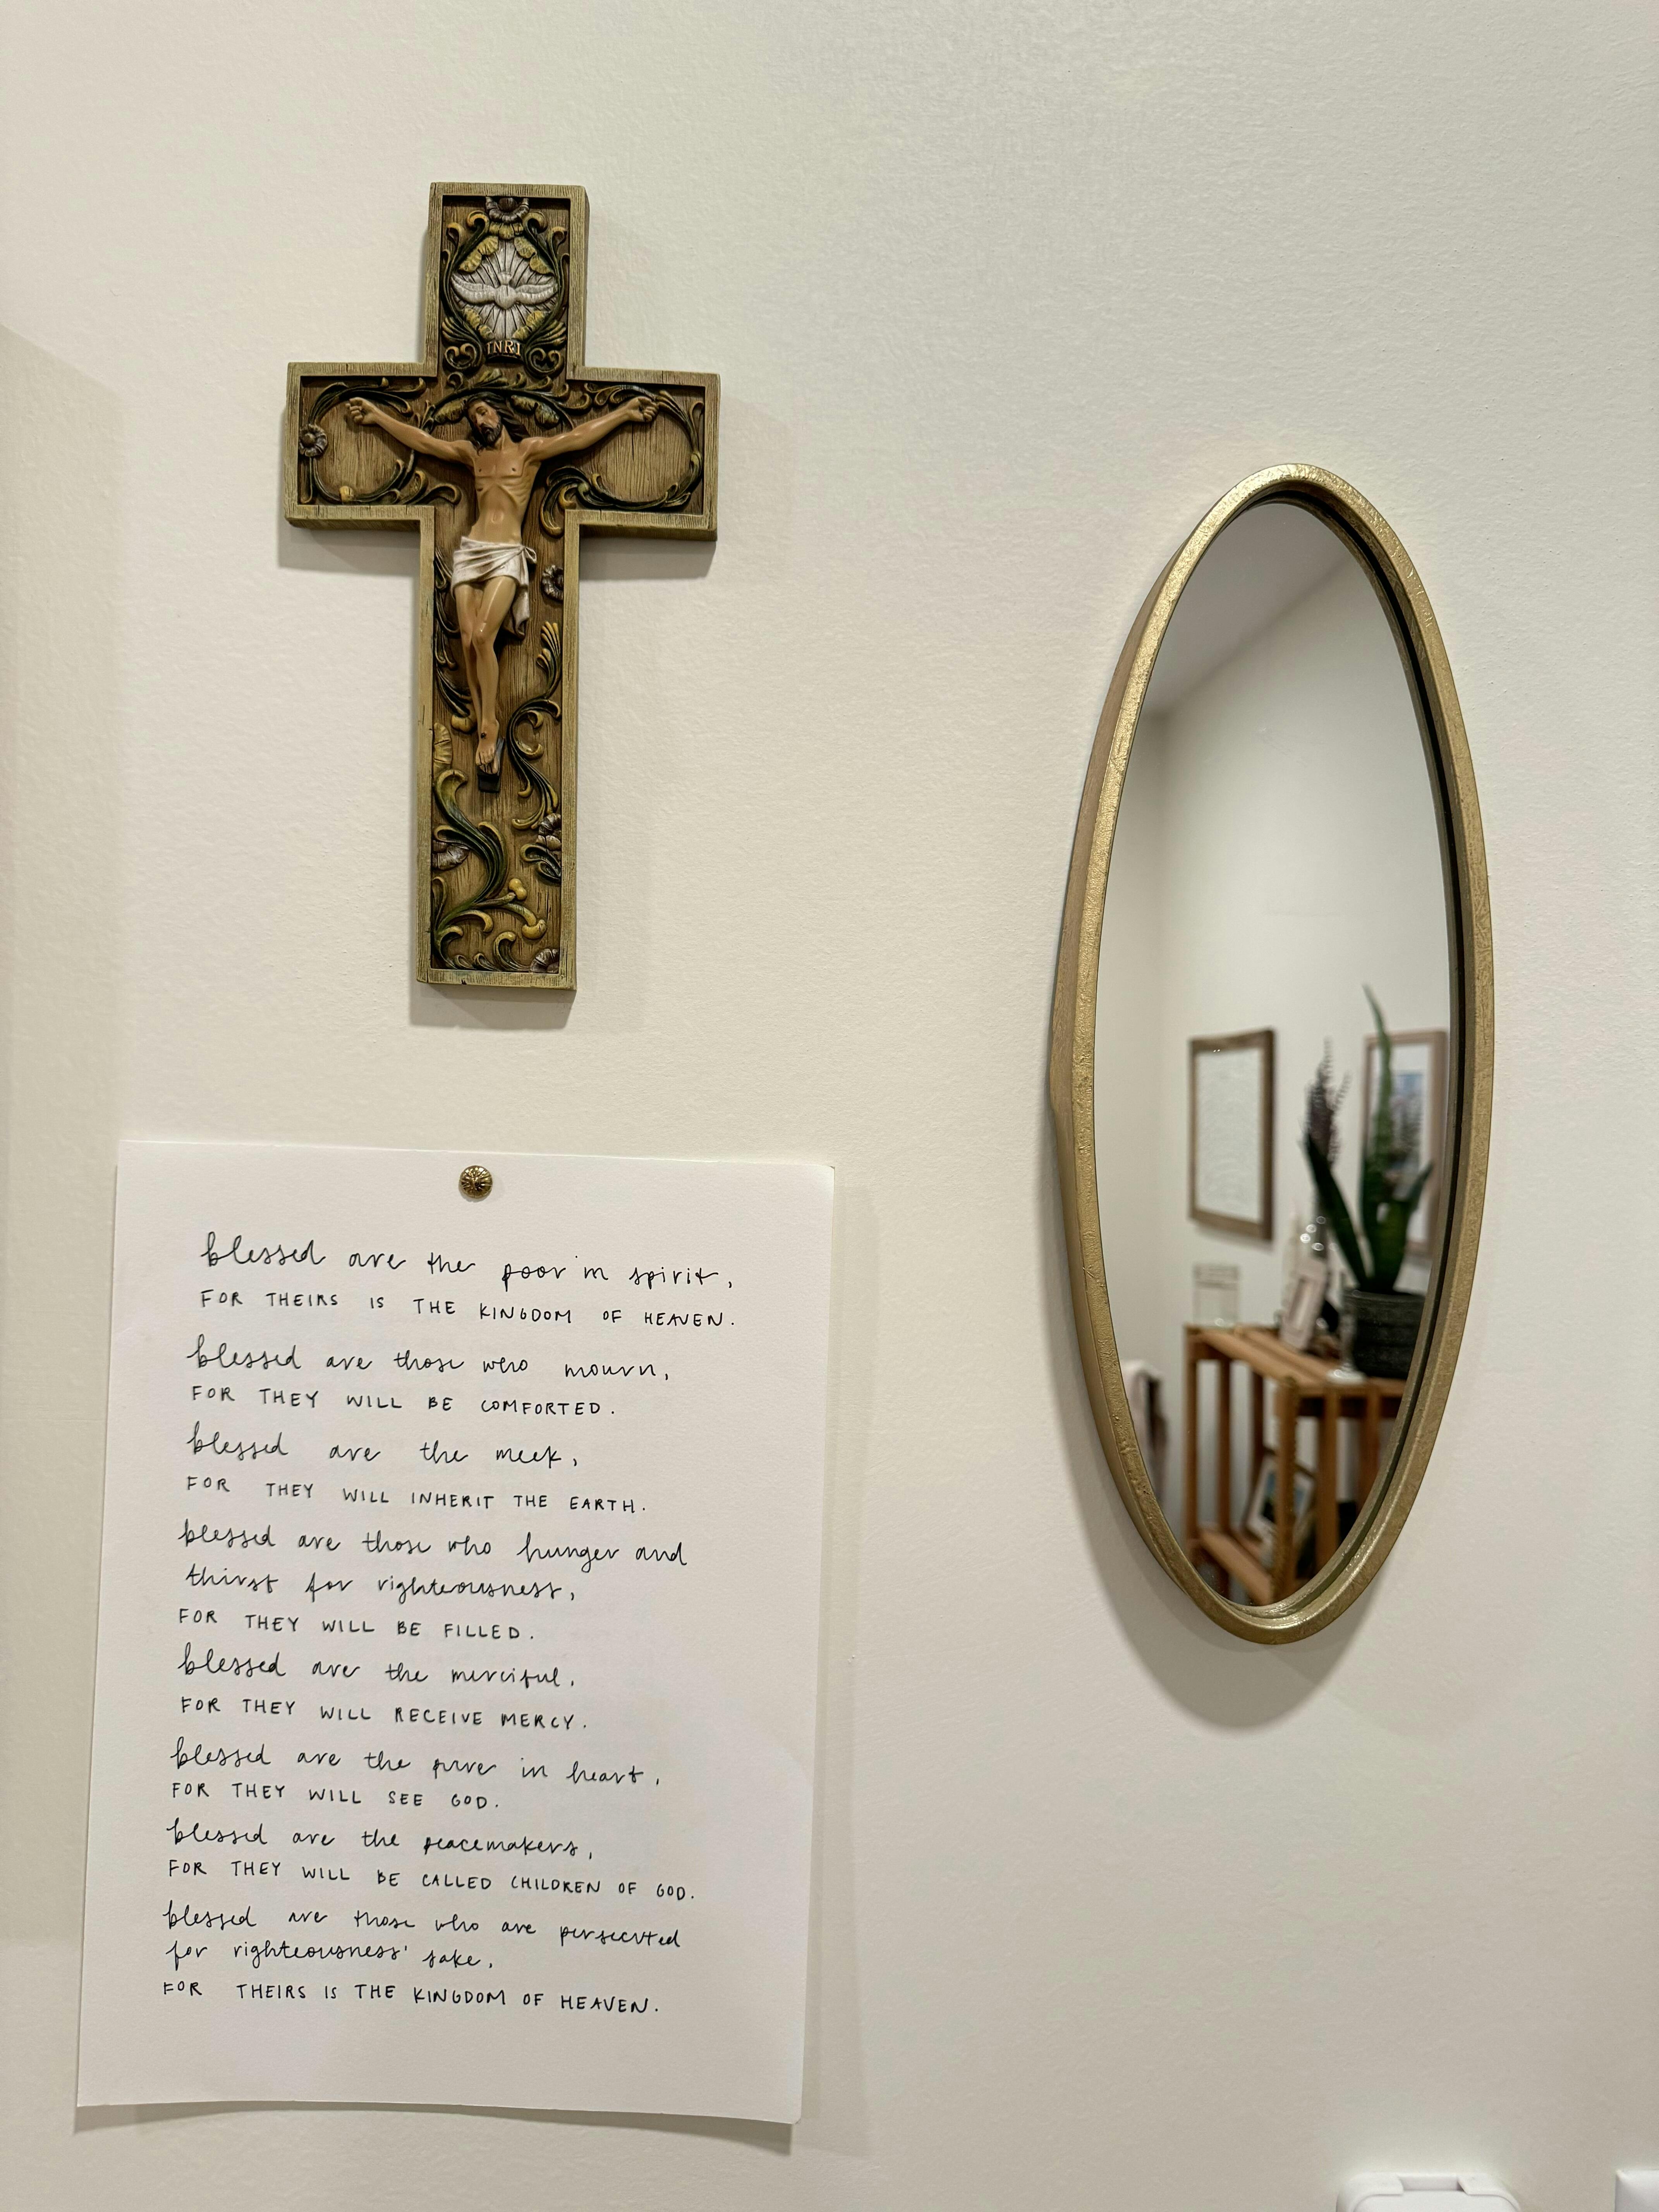 INRI
blessed are the poor in spirit,
FOR THEIRS IS THE KINGDOM OF HEAVEN.
blessed are those who mourn,
FOR THEY WILL BE COMFORTED.
blessed are the meek,
FOR THEY WILL INHERIT THE EARTH.
blessed are those who hunger and
thirst for righteousness,
FOR THEY WILL BE FILLED.
blessed are the merciful,
FOR THEY WILL RECEIVE MERCY.
blessed are the pure in heart,
FOR THEY WILL SEE GOD.
blessed are the peacemakers,
FOR THEY WILL BE CALLED CHILDREN OF GOD.
blessed are those who are persecuted
for righteousness' sake,
FOR THEIRS IS THE KINGDOM OF HEAVEN.